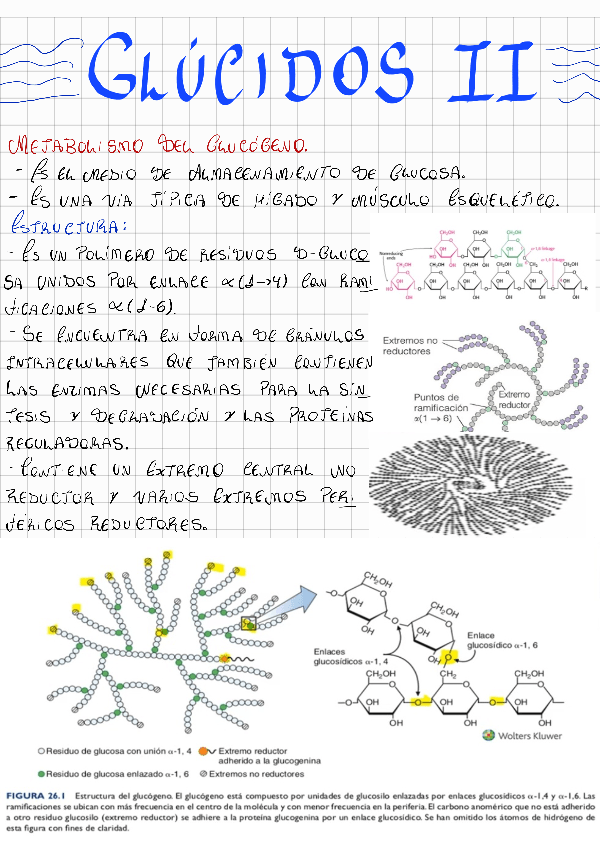 GLÚCIDOS II
METABOLISMO DEL GLUCÓGENO.
- ES EL MEDIO DE ALMACENAMIENTO DE GLUCOSA.
- ES UNA VÍA TÍPICA DE HÍGADO Y MÚSCULO ESQUELÉTICO.
ESTRUCTURA:
- ES UN POLÍMERO DE RESIDUOS D-GLUCO
SA UNIDOS POR ENLACE α(1→4) CON RAMI
FICACIONES α(1-6).
- SE ENCUENTRA EN FORMA DE GRÁNULOS
INTRACELULARES QUE TAMBIEN CONTIENEN
LAS ENZIMAS NECESARIAS PARA LA SÍN
TESIS Y DEGRADACIÓN Y LAS PROTEÍNAS
REGULADORAS.
- CONTIENE UN EXTREMO CENTRAL NO
REDUCTOR Y VARIOS EXTREMOS PERI
FÉRICOS REDUCTORES.
Nonreducing
ends
α-1,6 linkage
α-1,4 linkage
CH₂OH CH₂OH CH₂OH
CH₂OH CH₂OH CH₂OH CH₂OH CH₂ CH₂OH CH₂OH
Extremos no
reductores
Puntos de
ramificación
α(1 → 6)
Extremo
reductor
CH₂OH
OH
OH
CH₂OH
OH
OH
Enlace
glucosídico α-1, 6
Enlaces
glucosídicos α-1, 4
CH₂OH CH₂ CH₂OH
OH OH OH
OH OH OH
Wolters Kluwer
Residuo de glucosa con unión α-1, 4
Extremo reductor
adherido a la glucogenina
Residuo de glucosa enlazado α-1, 6
Extremos no reductores
FIGURA 26.1 Estructura del glucógeno. El glucógeno está compuesto por unidades de glucosilo enlazadas por enlaces glucosídicos α-1,4 y α-1,6. Las
ramificaciones se ubican con más frecuencia en el centro de la molécula y con menor frecuencia en la periferia. El carbono anomérico que no está adherido
a otro residuo glucosilo (extremo reductor) se adhiere a la proteína glucogenina por un enlace glucosídico. Se han omitido los átomos de hidrógeno de
esta figura con fines de claridad.